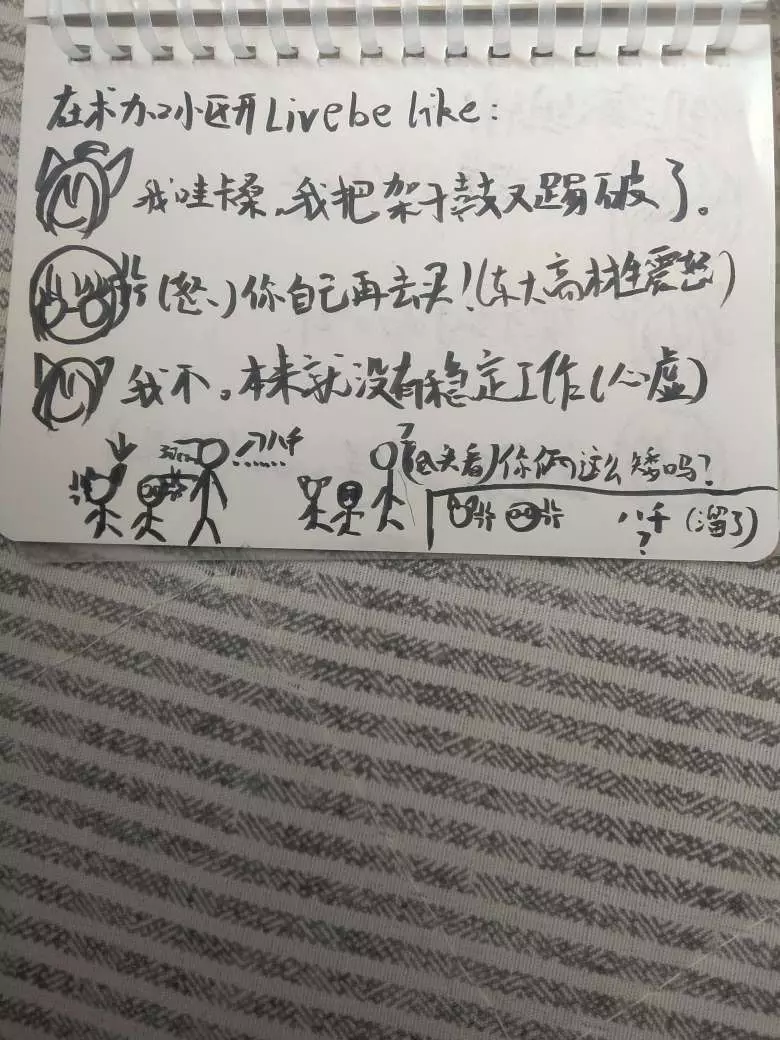 在术力口小区开Live be like:
我哇卡桑，我把架子鼓又踢破了。
(怒)你自己再去买!(东大高材生震怒)
我不。本来就没有稳定工作(心虚)
八千
?
(低头看)你俩这么矮吗?
八千(溜了)
?